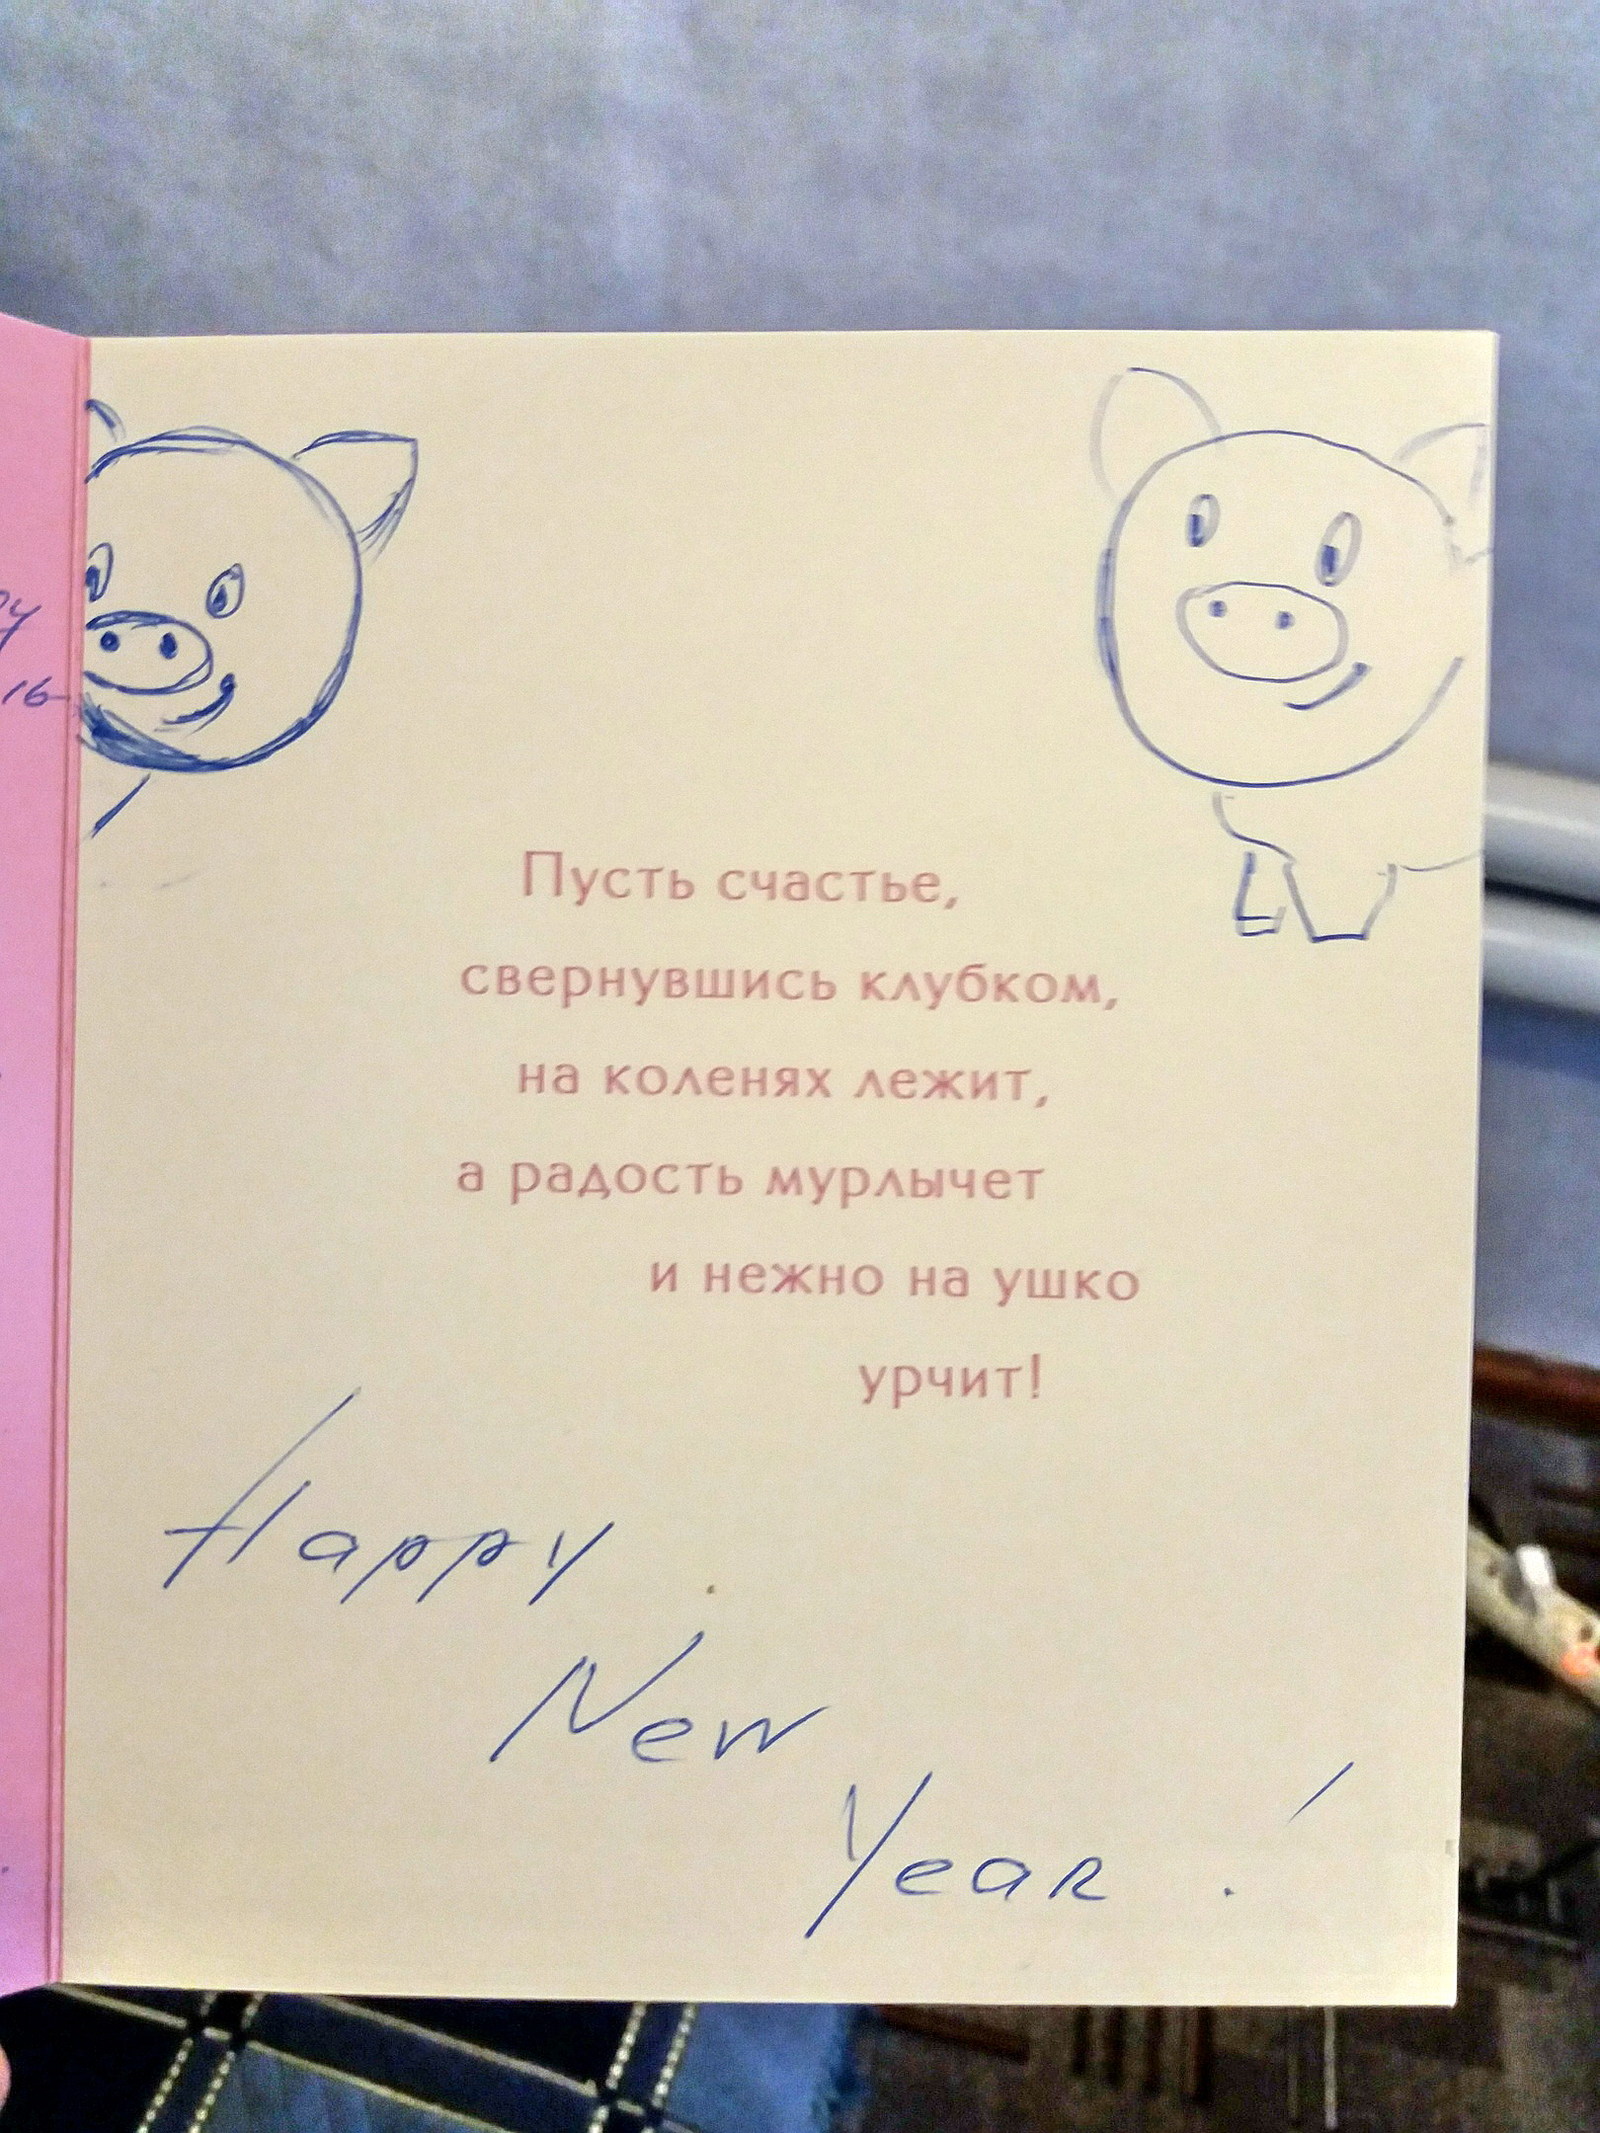 16
Пусть счастье,
свернувшись клубком,
на коленях лежит,
а радость мурлычет
и нежно на ушко
урчит!
Happy
New
Year!